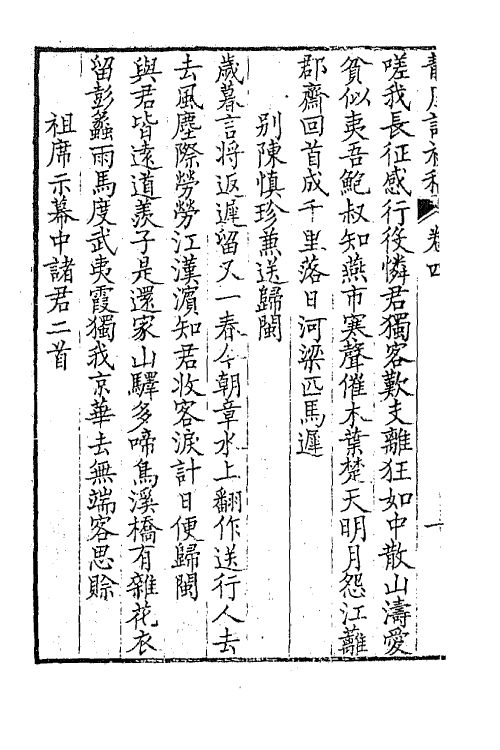 卷四
嗟我長征感行役憐君獨客歎支離狂如中散山濤愛
貧似夷吾鮑叔知燕市寒聲催木葉楚天明月怨江蘺
郡齋回首成千里落日河梁匹馬遲
別陳慎珍兼送歸閩
歲暮言將返遲留又一春今朝章水上翻作送行人去
去風塵際勞勞江漢濱知君收客淚計日便歸閩
與君皆遠道羨子是還家山驛多啼鳥溪橋有雜花衣
留彭蠡雨馬度武夷霞獨我京華去無端客思賒
祖席示幕中諸君二首